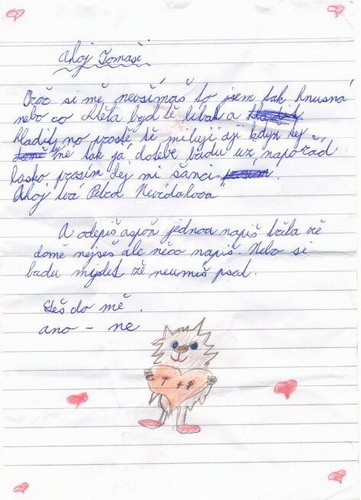 Ahoj Tomaši
Proč si mě nevšímáš to jsem tak hnusná
nebo co chtěla bych tě libat a
hladit no prostě tě miluji aji když ty
ne tak já dotebe budu uz napořád.
Lasko prosim Dej mi šanci
Ahoj tvá Petra
A odepiš aspoň jednou napiš třeba že
domě nejseš ale něco napiš. Nebo si
budu myslet že neumiš psat.
Seš do mě.
ano - ne
T + P